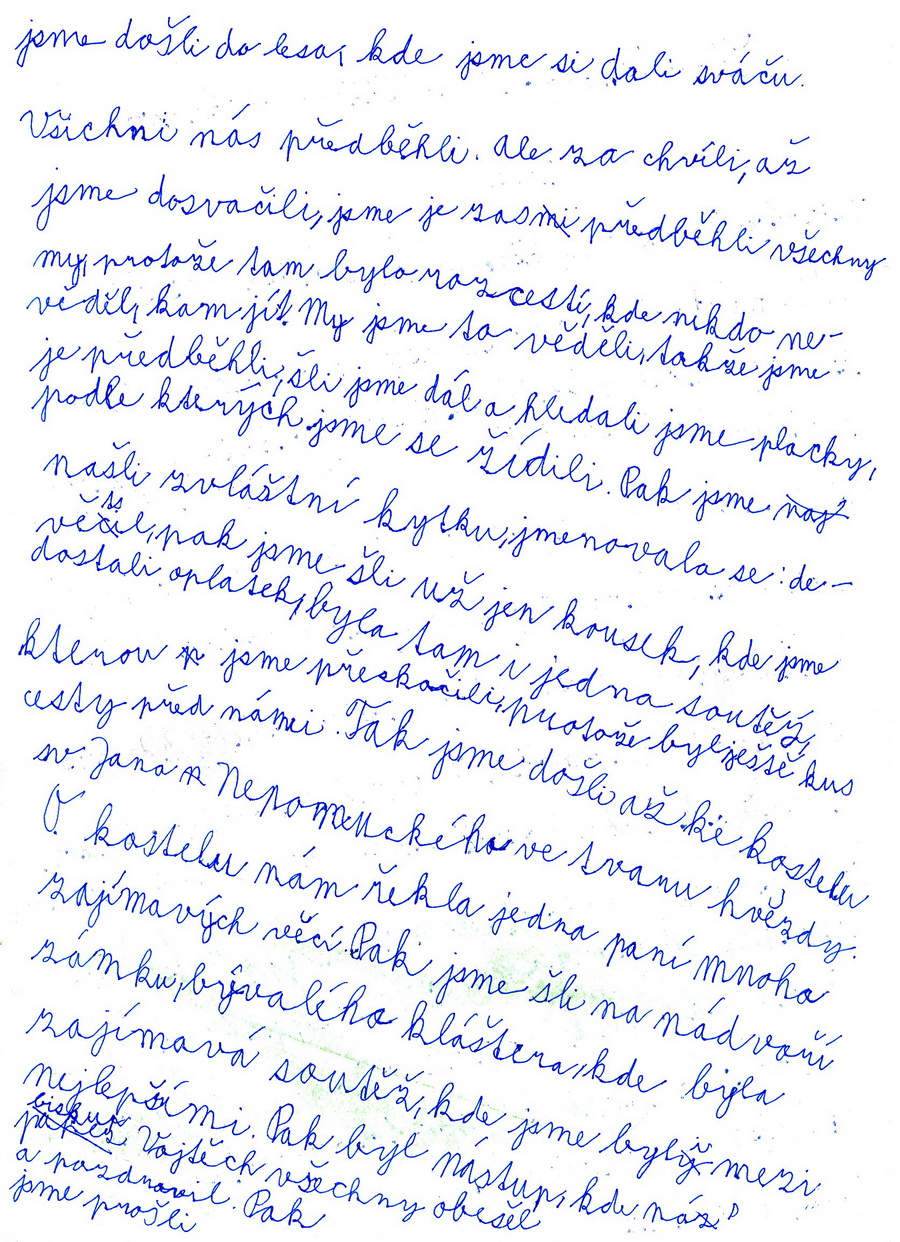 jsme došli do lesa, kde jsme si dali sváču.
Všichni nás předběhli. Ale za chvíli, až
jsme dosvačili, jsme je zas předběhli všechny
my, protože tam bylo rozcestí, kde nikdo ne-
věděl, kam jít. My jsme to věděli, takže jsme
je předběhli, šli jsme dál a hledali jsme placky,
podle kterých jsme se řídili. Pak jsme
našli zvláštní kytku, jmenovala se: de-
věsil, pak jsme šli už jen kousek, kde jsme
dostali oplatek, byla tam i jedna soutěž,
kterou jsme přeskočili, protože byl ještě kus
cesty před námi. Tak jsme došli až ke kostelu
sv. Jana Nepomuckého ve tvaru hvězdy.
O kostelu nám řekla jedna paní mnoho
zajímavých věcí. Pak jsme šli na nádvoří
zámku, bývalého kláštera, kde byla
zajímavá soutěž, kde jsme byli mezi
nejlepšími. Pak byl nástup, kde nás
biskup Vojtěch všechny obešel
a pozdravil. Pak
jsme prošli